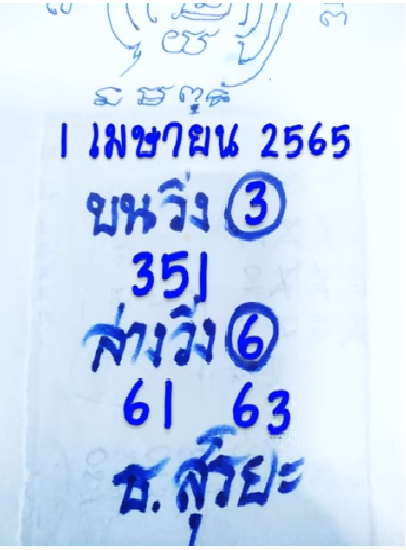 1 เมษายน 2565
บนวิ่ง 3
351
ล่างวิ่ง 6
61 63
ช. สุริยะ